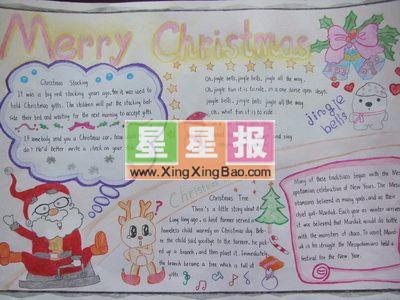 Merry Christmas
Christmas Stocking
It was a big red stocking years ago. It was used to
hold Christmas gifts. The children will put the stocking bed-
side their bed and waiting for the next morning to accept gifts.
If somebody send you a Christmas car, how
do? He'd better write a check on your
Oh, jingle bells, jingle bells, jingle all the way.
Oh, what fun it is to ride, in a one horse open sleigh.
jingle bells, jingle bells, jingle all the way
oh, what fun it is to ride
and sing
jingle
bells
星星报
www.XingXingBao.com
Christmas
Christmas Tree
There's a little story about it
Long long ago, a kind farmer served a
homeless child warmly on Christmas day. Befo-
re the child said goodbye to the farmer, he pick-
ed up a branch, and then plant it. Immediately,
the branch become a tree which is full of
gifts.
Many of these traditions began with the Mes-
opotamian celebration of New Years. The Mes-
otamians believed in many gods, and as their
chief god - Marduk. Each year as winter arrives
it was believed that Marduk would do battle
with the monsters of chaos. To assist Mard-
uk in his struggle the Mesopotamians held a
festival for the New Year.